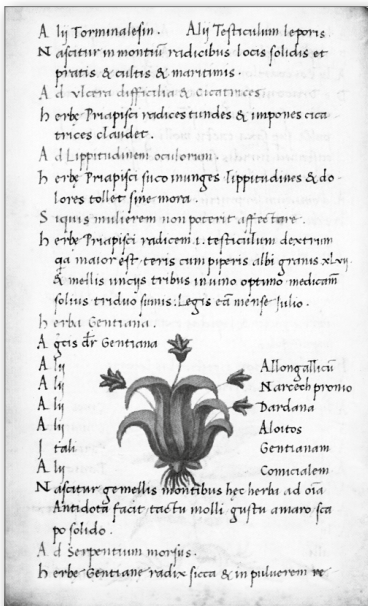 Alij Torminalesin. Alij Testiculum leporis.
Nascitur in montiũ radicibus locis solidis et
pratis & cultis & maritimis.
Ad vlcera difficilia & cicatrices
herbę Priapisci radices tundes & impones cica
trices claudet.
Ad Lippitudinem oculorum.
herbę Priapisci suco inunges lippitudines & do
lores tollet sine mora.
Siquis mulierem non poterit affectare.
herbę Priapisci radicem .i. testiculum dextrum
qa maior est teris cum piperis albi granis xLvij
& mellis uncijs tribus in uino optimo
solius triduo sumis. Legis eã mense Julio.
herba Gentiana.
Agcis dr̃ Gentiana
Alij Allongallicũ
Alij Narcechpronio
Alij Dardana
Alij Aloitos
Itali Gentianam
Alij Comicialem
Nascitur gemellis montibus hec herba ad oĩa
Antidota facit tactu molli gustu amaro sca
po solido.
Ad Serpentium morsus.
herbę Gentiane radix sicca & in puluerem re